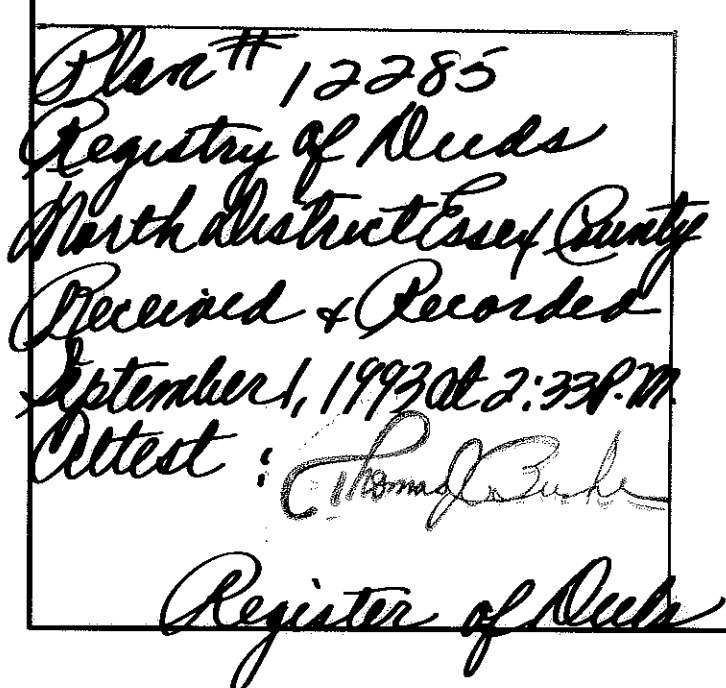 Plan # 12285
Registry of Deeds
North District Essex County
Received & Recorded
September 1, 1993 at 2:33 P.M.
Attest : Thomas J. Burke
Register of Deeds